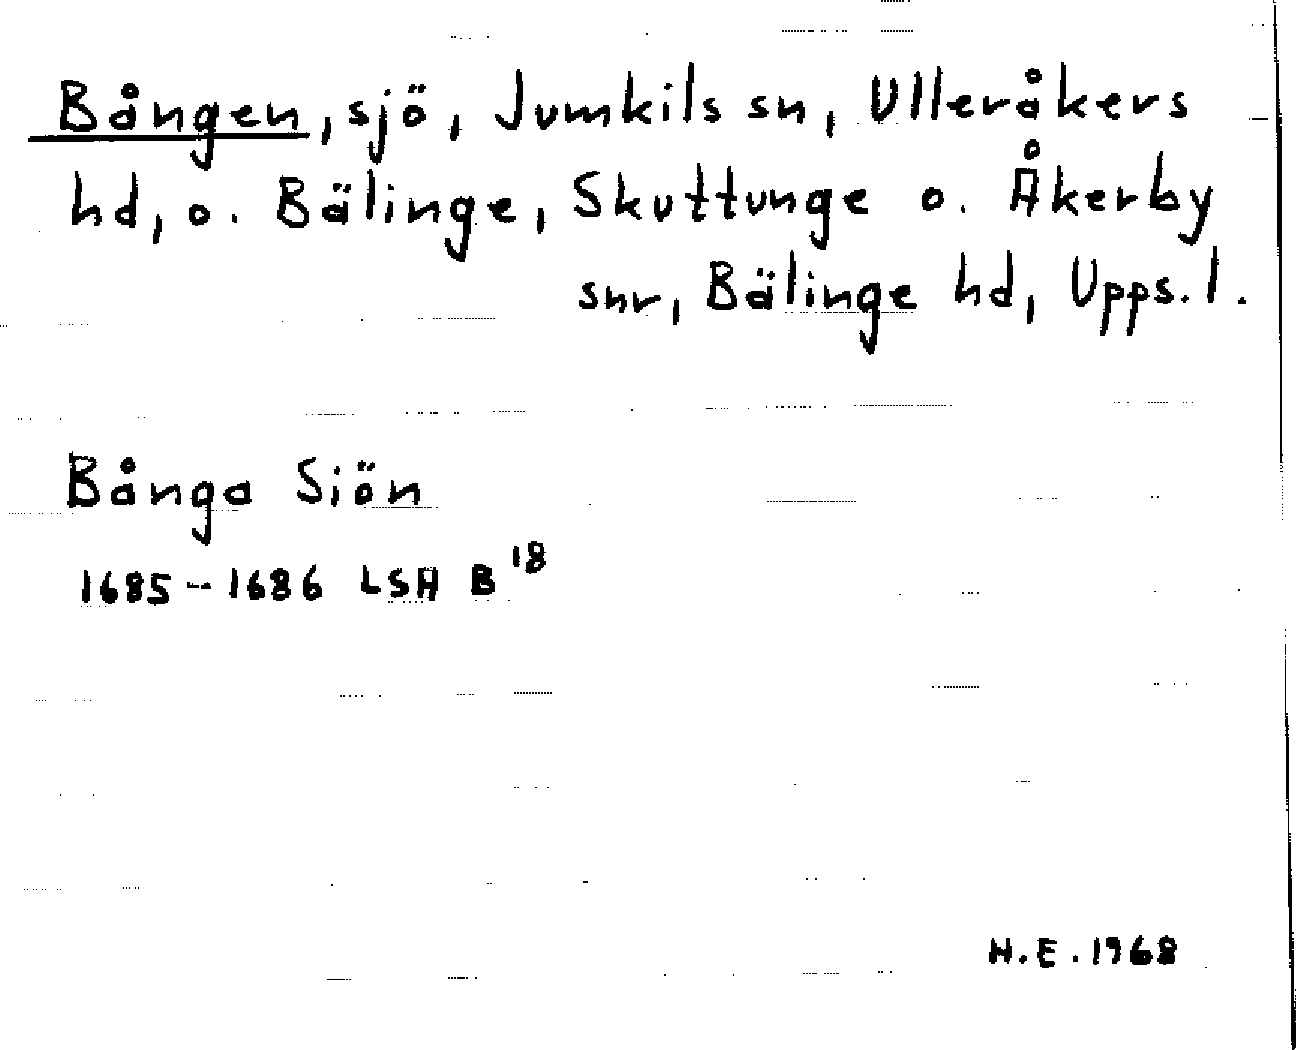 Bången, sjö, Jumkils sn, Ulleråkers
hd, o. Bälinge, Skuttunge o. Åkerby
snr, Bälinge hd, Upps. l.
Bånga Siön
1685--1686 LSA B 18
H.E. 1968